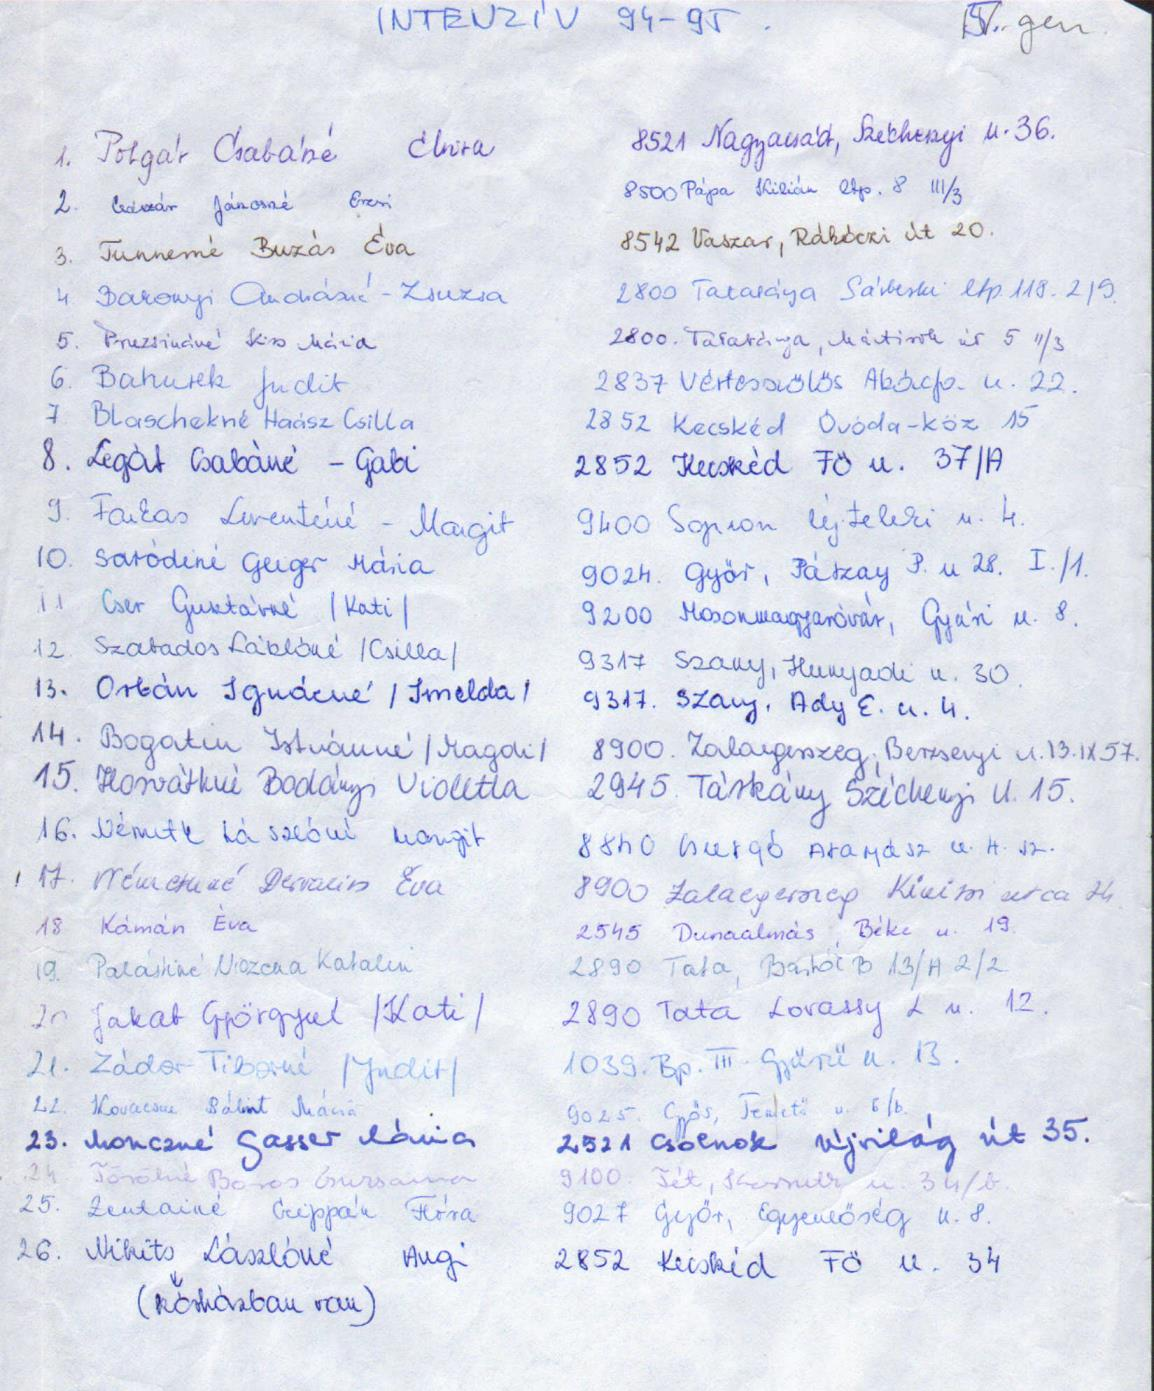 INTENZÍV 94-95. IV. gen.
1. Polgár Csabáné Elvira 8521 Nagyacsád, Széchenyi u. 36.
2. Jánosné Erzsi 8500 Pápa Kilián ltp. 8 III/3
3. Tunnerné Buzás Éva 8542 Vaszar, Rákóczi út 20.
4 Baronyi Andrásné - Zsuzsa 2800 Tatabánya Sárberki ltp. 118. 2/9.
5. Kiss Mária 2800. Tatabánya, Mártírok út 5 II/3
6. Bahurek Judit 2837 Vértesszőlős u. 22.
7 Blaschekné Haász Csilla 2852 Kecskéd Óvoda-köz 15
8. Légát Csabáné - Gabi 2852 Kecskéd Fő u. 37/A
9. Farkas Leventéné - Margit 9400 Sopron u. 4.
10. Saródiné Geiger Mária 9024. Győr, Pátzay P. u 28. I./1.
11 Cser Gusztávné /Kati/ 9200 Mosonmagyaróvár, Gyári u. 8.
12. Szabados Lászlóné /Csilla/ 9317 Szany, Hunyadi u. 30.
13. Orbán Ignácné /Imelda/ 9317. Szany, Ady E. u. 4.
14. Bogatin Istvánné /Magdi/ 8900. Zalaegerszeg, Berzsenyi u. 13. IX 57.
15. Horváthné Bodányi Violetta 2945. Tárkány Széchenyi U. 15.
16. Németh Lászlóné Margit 8840 Csurgó u. 4. sz.
17. Éva 8900 Zalaegerszeg Kinizsi utca
18 Kámán Éva 2545 Dunaalmás, Béke u. 19.
19. Palástiné Katalin 2890 Tata, Bartók B 13/A 2/2
20 Jakab Györgyné /Kati/ 2890 Tata Lovassy L u. 12.
21. Zádor Tiborné /Judit/ 1039. Bp. III. Gyűrű u. 13.
22. Kovácsné Bálint Mária 9025. Győr, u. 6/b.
23. Monczné Gasser Mária 2521 Csolnok újvilág út 35.
24 Boros Zsuzsanna 9100. Tét, u. 34/b.
25. Zentainé Czippán Flóra 9027 Győr, Egyenlőség u. 8.
26. Nikits Lászlóné Angi 2852 Kecskéd Fő u. 34
(kórházban van)